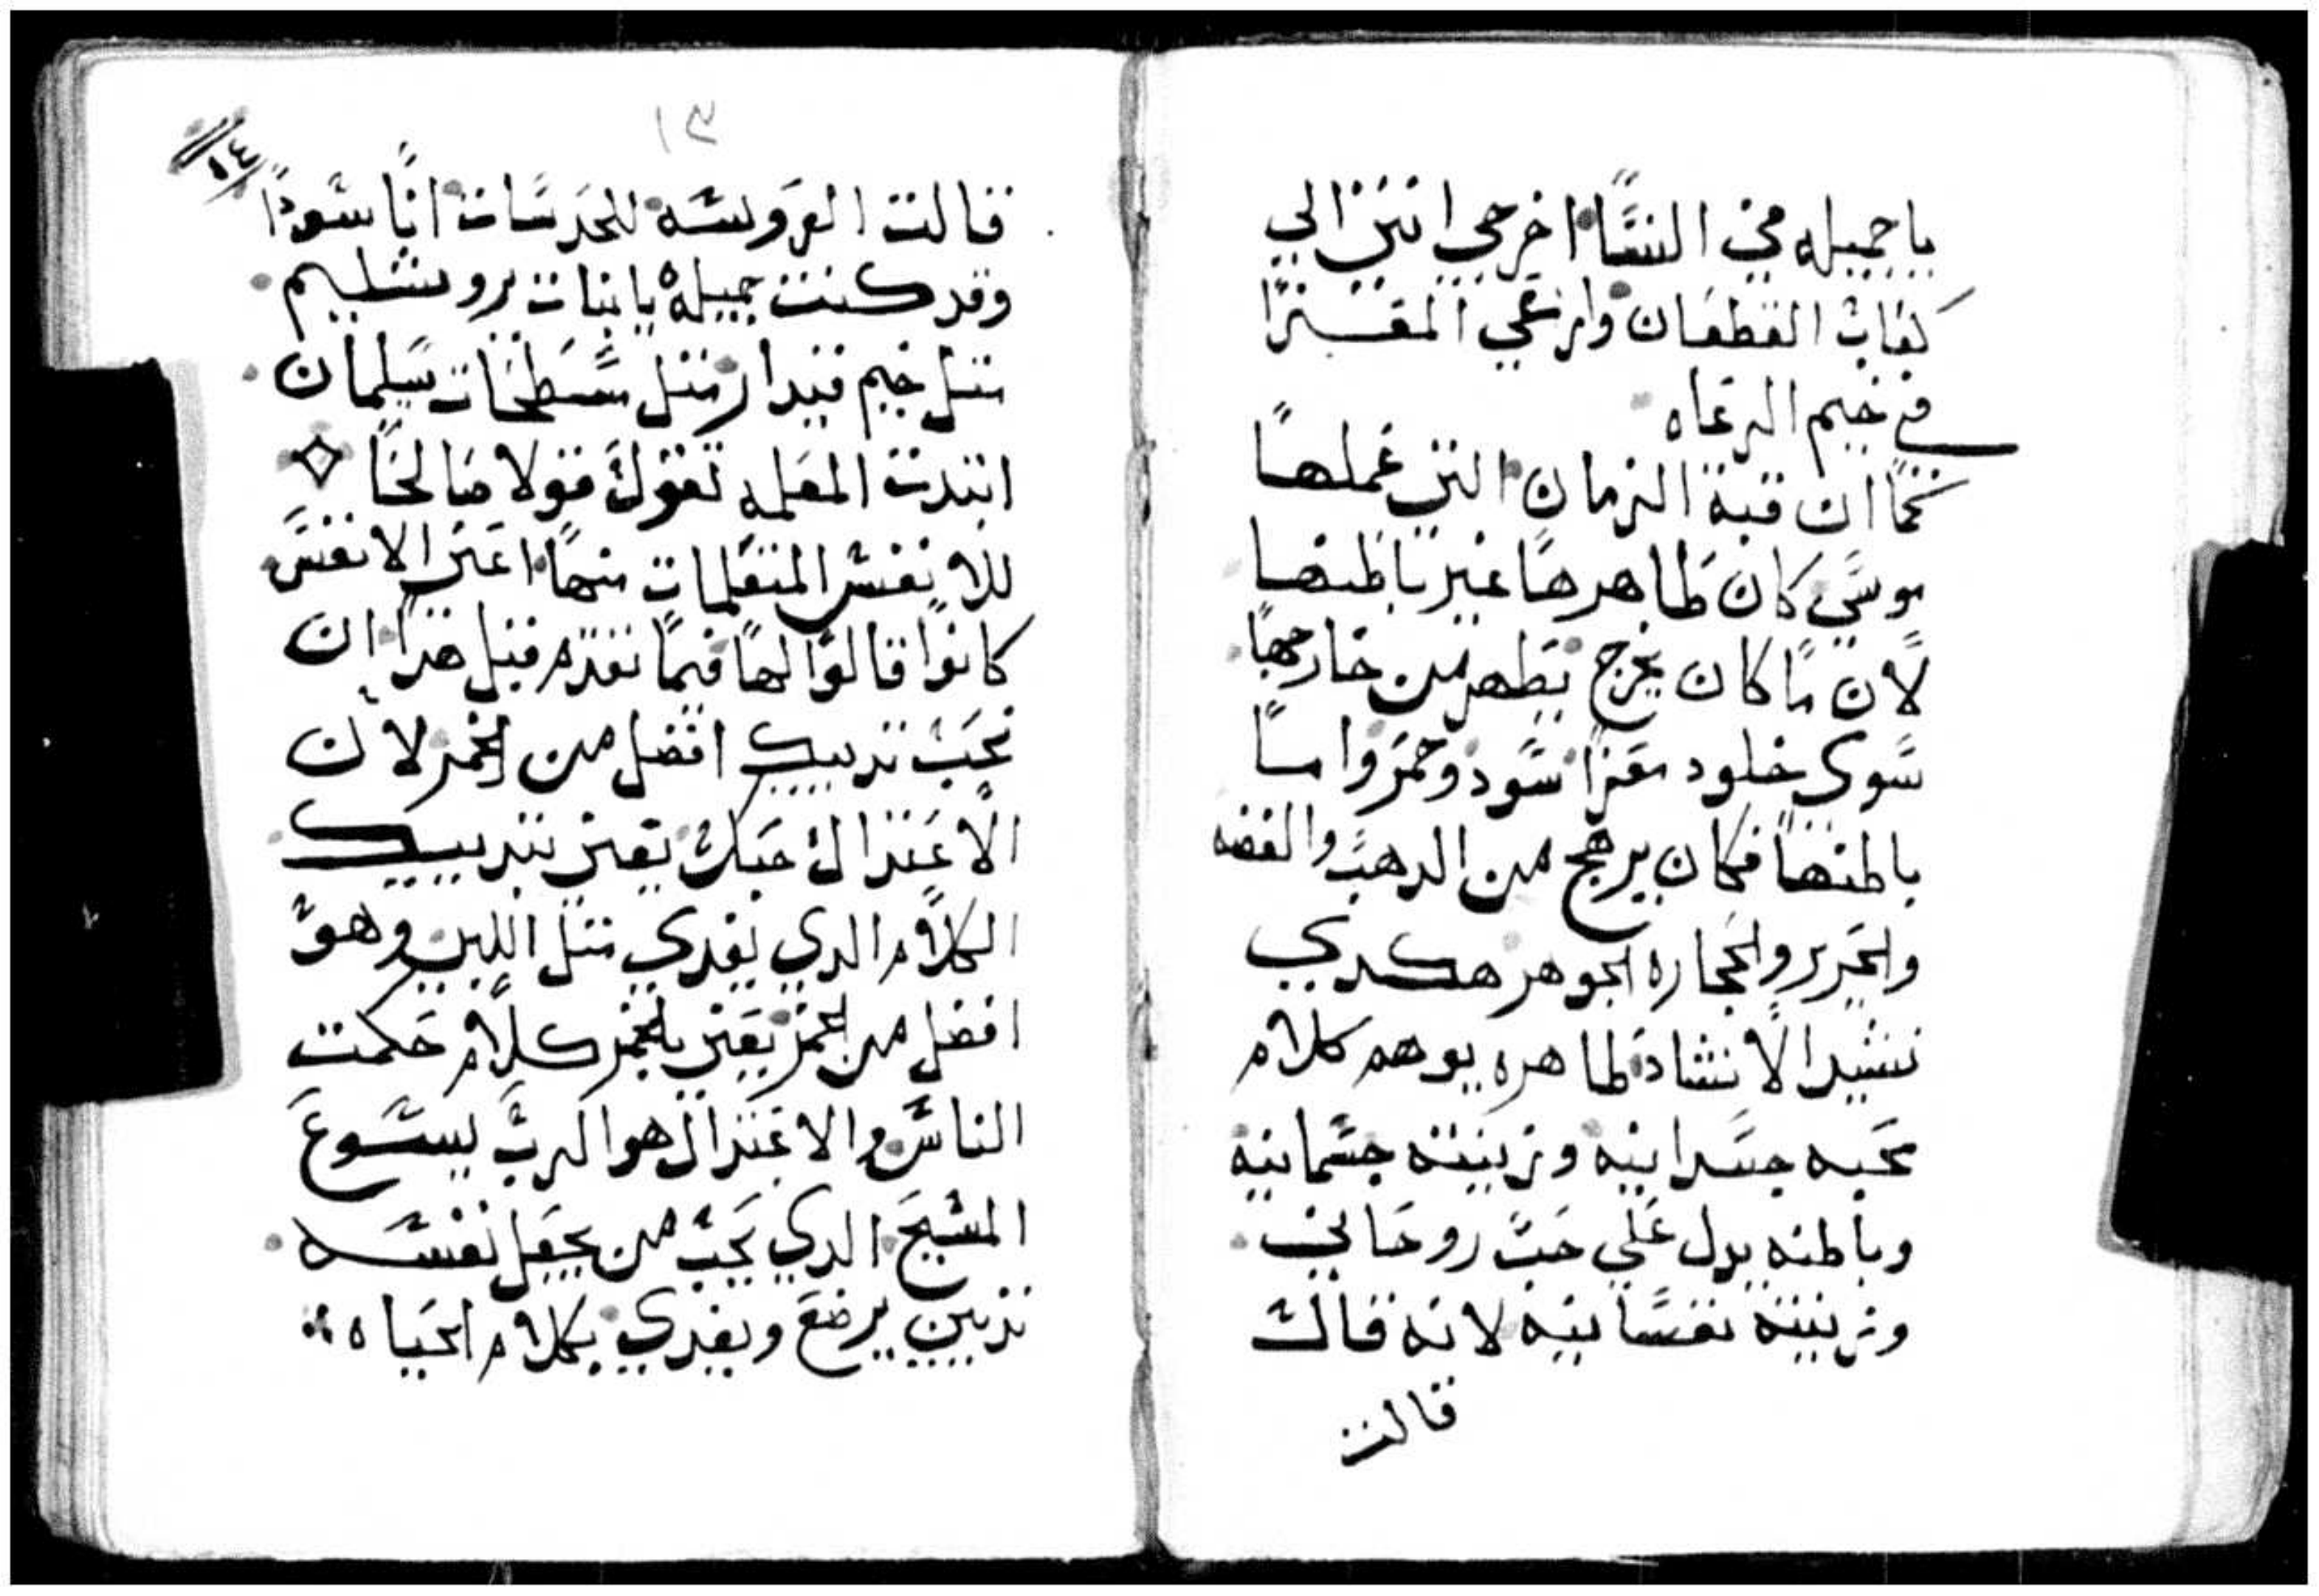 يا جميله في النسا اخرجي انتي الي
كعاب القطعان وارعي المعزا
في خيم الرعاه
كما ان قبة الزمان التي عملها
موسي كان ظاهرها غير باطنها
لان ما كان يخرج يظهر من خارجها
سوي جلود معزا سود وحمر واما
باطنها فكان يرهج من الدهب والفضه
والحرير والحجاره الجوهر هكدي
نشيد الانشاد ظاهره يوهم كلام
محبه جسدانيه وزينة جسمانيه
وباطنه يدل علي حب روحاني
وزينة نفسانيه لانه قال
قالت
١٣
١٤
قالت العروسه للحدسات انا سودا
وقد كنت جميله يا بنات يروشليم
متل خيم قيدار متل شطحات سليمان
ابتدت المعلمه تقول قولا صالحا
للانفس المتعلمات منها اعني الانفس
كانوا قالوا لها فيما تقدم قبل هدا ان
نحب تدييك افضل من الخمر لان
الاعتدال حبك يعني بتدييك
الكلام الدي يغدي متل اللبن وهو
افضل من الخمر يعني بالخمر كلام حكمت
الناس والاعتدال هو الرب يسوع
المسيح الدي يحب من يجعل نفسه
تديين يرضع ويغدي بكلام الحياه